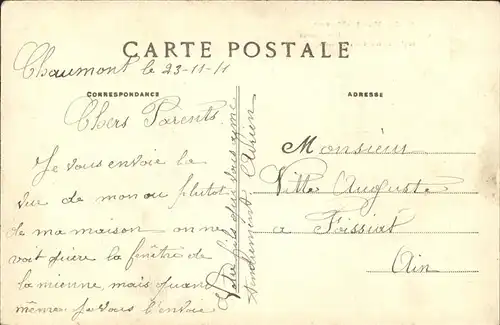 CARTE POSTALE
Chaumont le 23-11-11
CORRESPONDANCE
ADRESSE
Chers Parents
Je vous envoie la
vue de mon ou plutot
de ma maison on ne
voit guère la fenêtre de
la mienne, mais quand
même je vous l'envoie
Votre fils qui vous aime
tendrement Adrien
Monsieur
Ville Auguste
a Foissiat
Ain